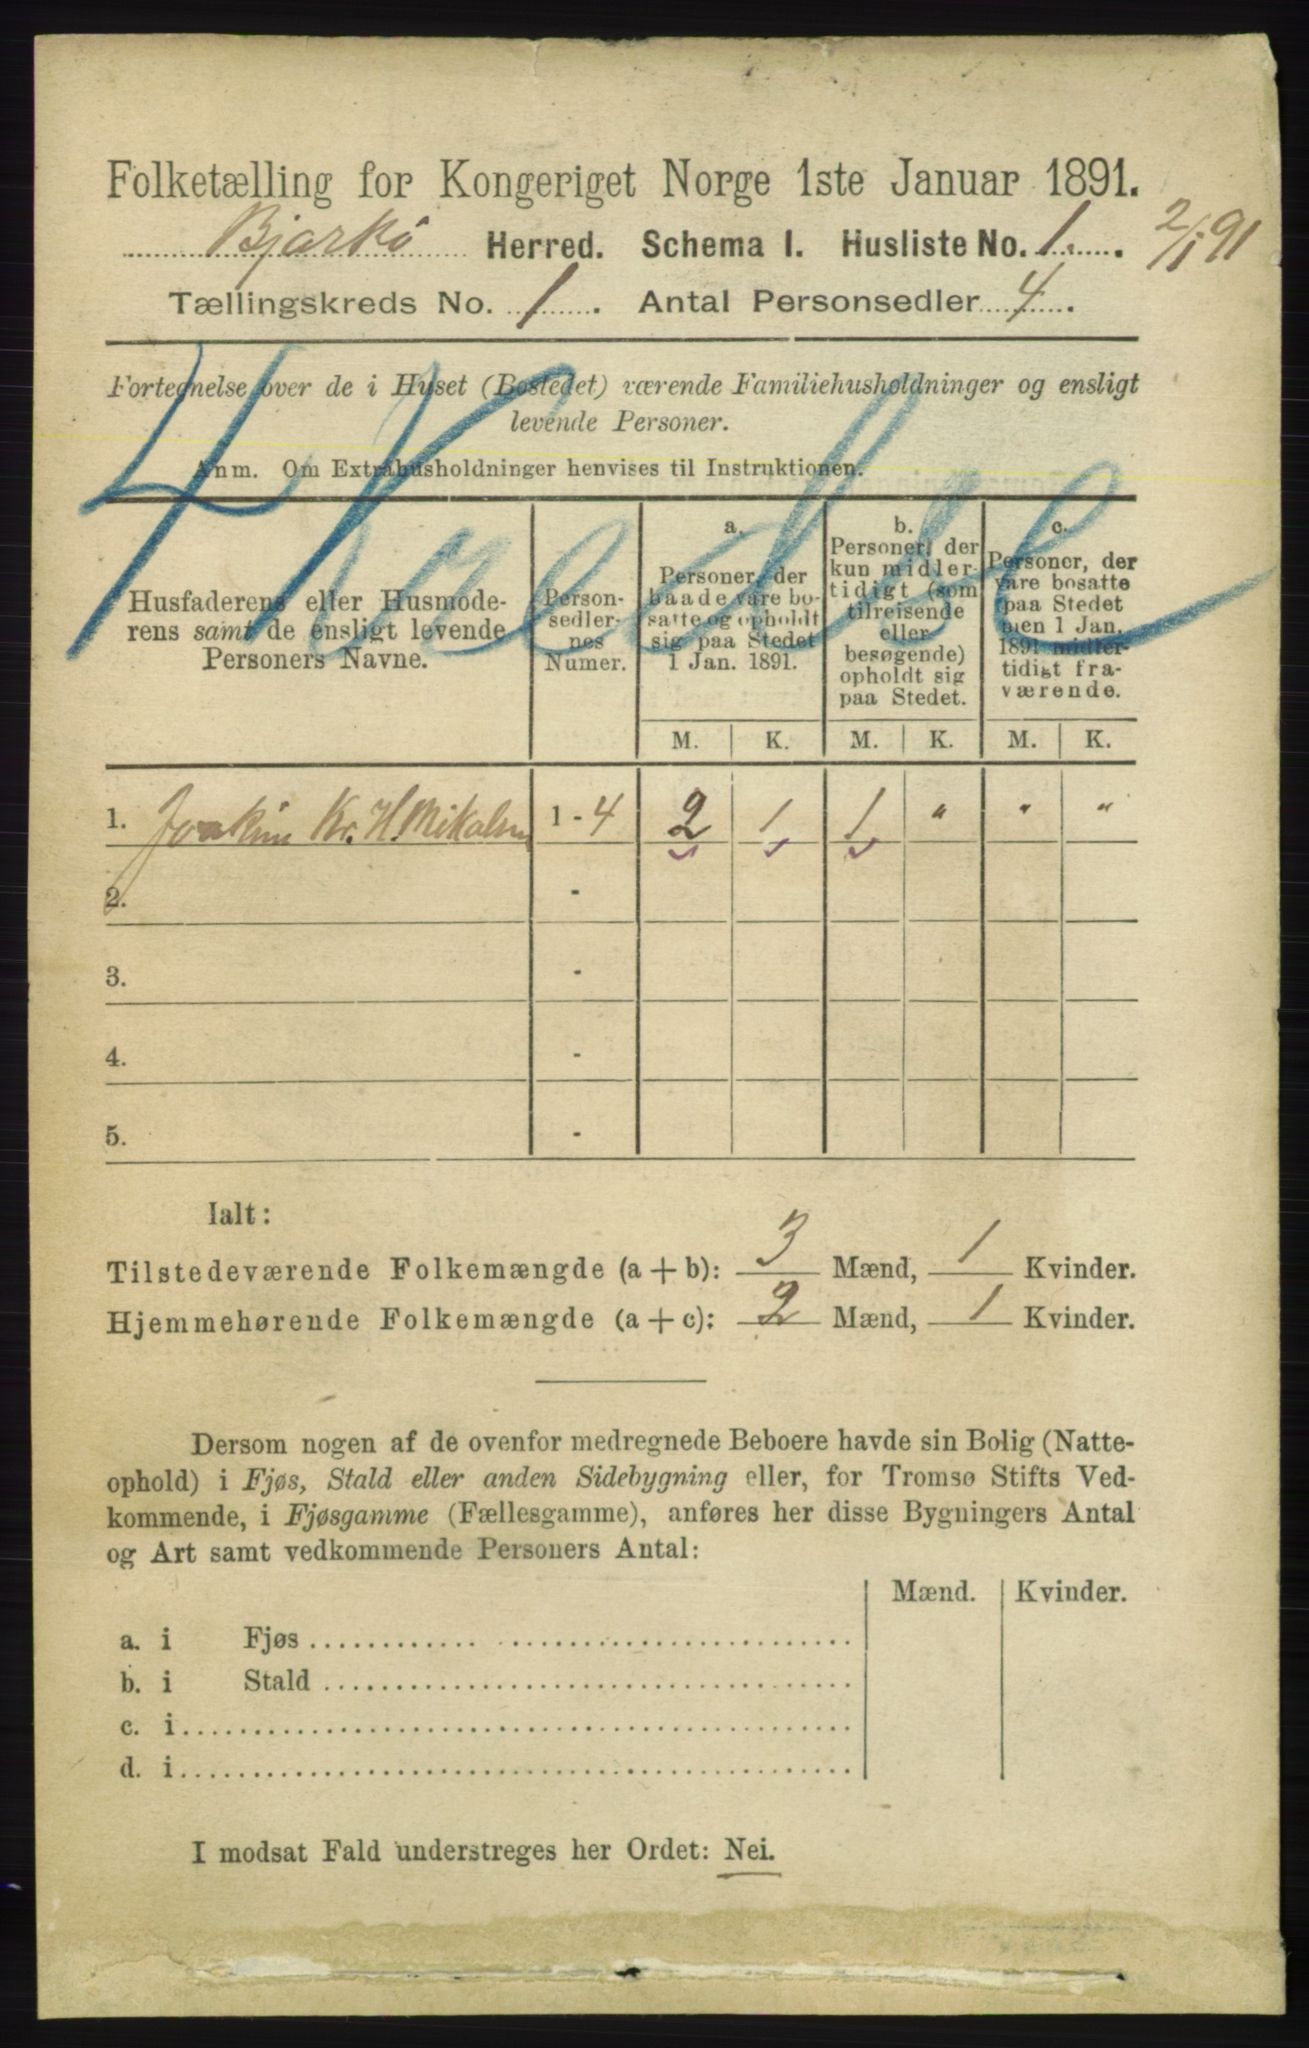 Folketælling for Kongeriget Norge 1ste Januar 1891.
Bjarkö Herred. Schema I. Husliste No. 1. 2/1 91
Tællingskreds No. 1. Antal Personsedler 4.
Fortegnelse over de i Huset (Bostedet) værende Familiehusholdninger og ensligt
levende Personer.
Anm. Om Extrahusholdninger henvises til Instruktionen.
Husfaderens eller Husmode-
rens samt de ensligt levende
Personers Navne.
Person-
sedler-
nes
Numer.
a.
Personer, der
baade vare bo-
satte og opholdt
sig paa Stedet
1 Jan. 1891.
b.
Personer, der
kun midler-
tidigt (som
tilreisende
eller
besøgende)
opholdt sig
paa Stedet.
c.
Personer, der
vare bosatte
paa Stedet
men 1 Jan.
1891 midler-
tidigt fra-
værende.
M. K. M. K. M. K.
1. Joakim Kr. H. Mikalsen 1 - 4 2 1 1 " " "
2. -
3. -
4. -
5. -
Ialt:
Tilstedeværende Folkemængde (a + b): 3 Mænd, 1 Kvinder.
Hjemmehørende Folkemængde (a + c): 2 Mænd, 1 Kvinder.
Dersom nogen af de ovenfor medregnede Beboere havde sin Bolig (Natte-
ophold) i Fjøs, Stald eller anden Sidebygning eller, for Tromsø Stifts Ved-
kommende, i Fjøsgamme (Fællesgamme), anføres her disse Bygningers Antal
og Art samt vedkommende Personers Antal:
Mænd. Kvinder.
a. i Fjøs
b. i Stald
c. i
d. i
I modsat Fald understreges her Ordet: Nei.